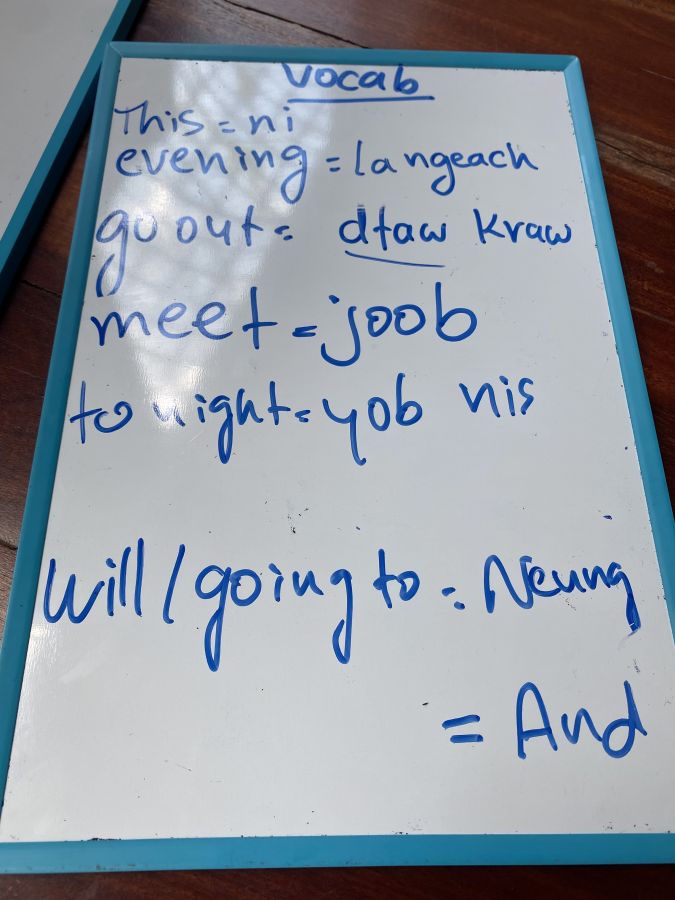 Vocab
This = ni
evening = langeach
go out = dtaw kraw
meet = joob
to night = yob nis
Will / going to = Neung
= And